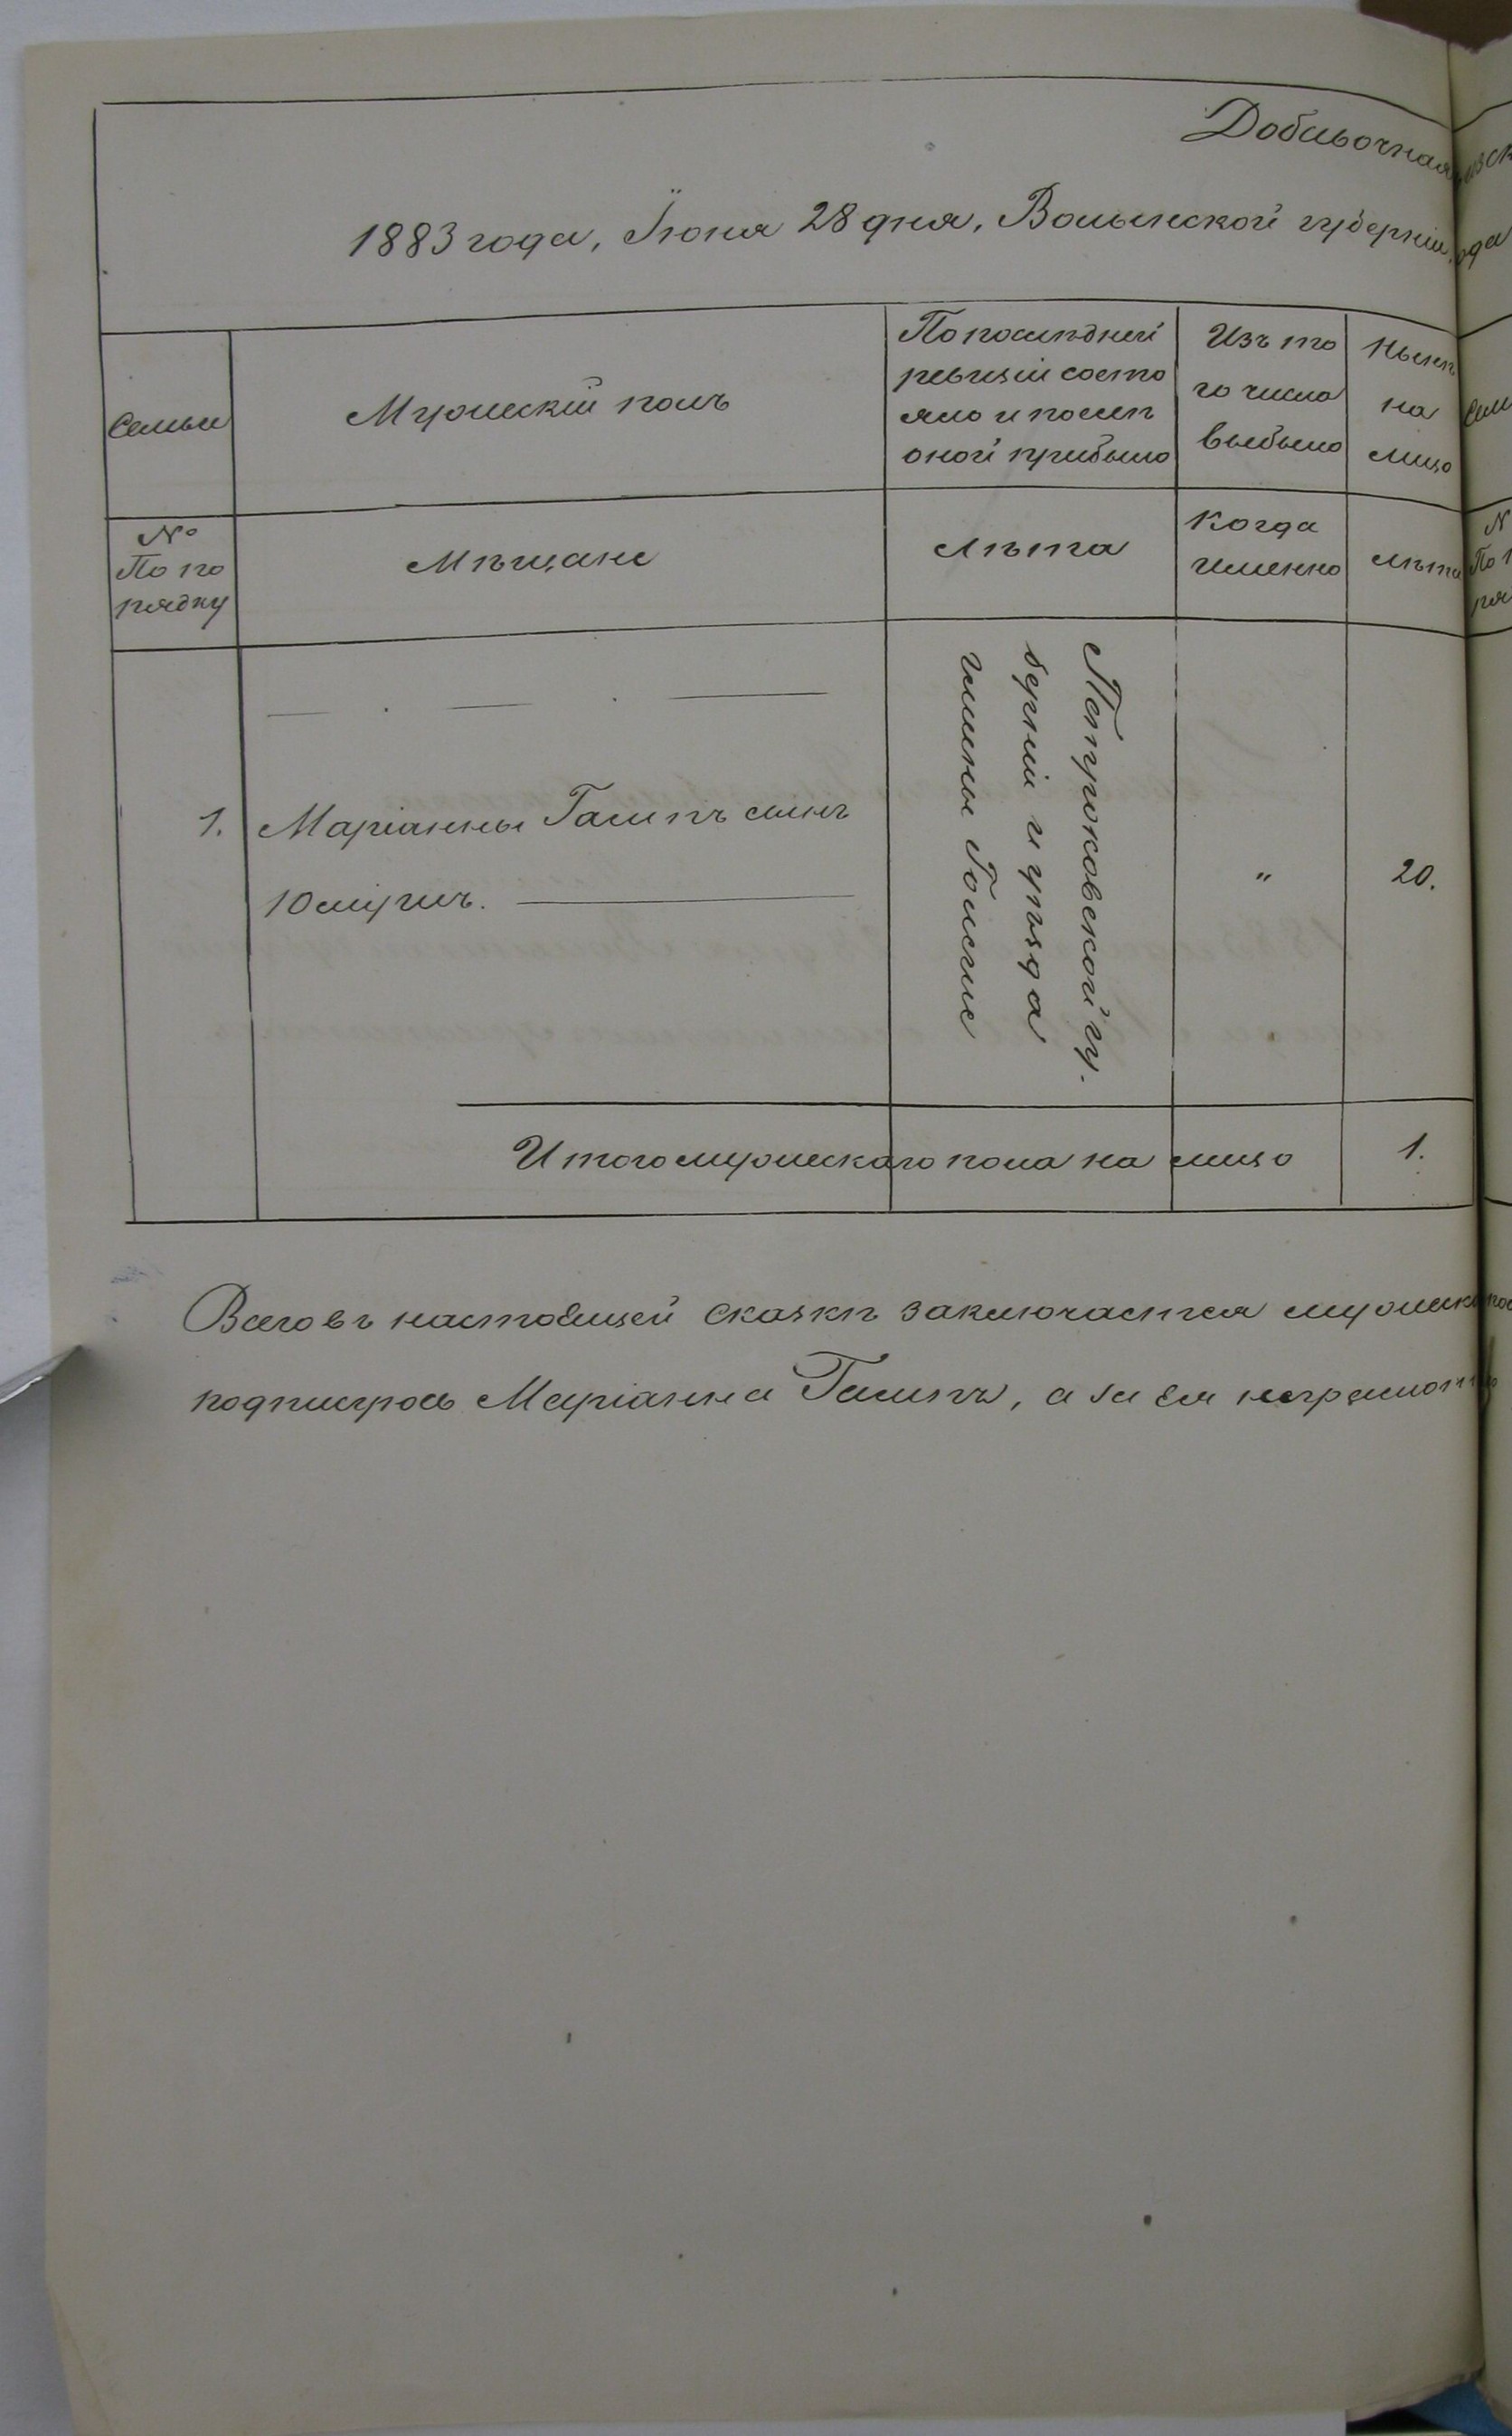 Добавочная
1883 года, Іюня 28 дня, Волынской губерніи,
Семьи
Мужескій полъ
По послѣдней
ревизіи состо
яло и послѣ
оной прибыло
Изъ то
го числа
выбыло
Нынѣ
на
лицо
№
По по
рядку
Мѣщане
Лѣта
Когда
именно
лѣта
1.
Маріанны Галипъ сынъ
Юлiушъ.
Петроковской гу-
берніи и уѣзда
гмины
"
20.
Итого мужескаго пола на лицо
1.
Всего въ настоящей сказкѣ заключается мужеска
подписуюсь Маріанна Галипъ, а за ея неграмотн